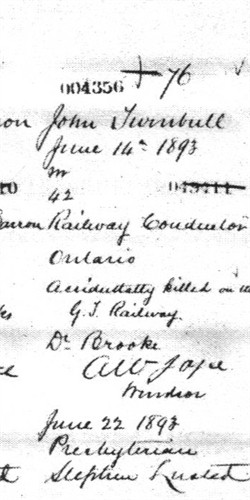 + 76
004356
John Turnbull
June 14th 1893
m
42
Railway Conductor
Ontario
Accidentally killed on
G. T. Railway
Dr Brooke
Windsor
June 22 1893
Presbyterian
Stephen Lusted